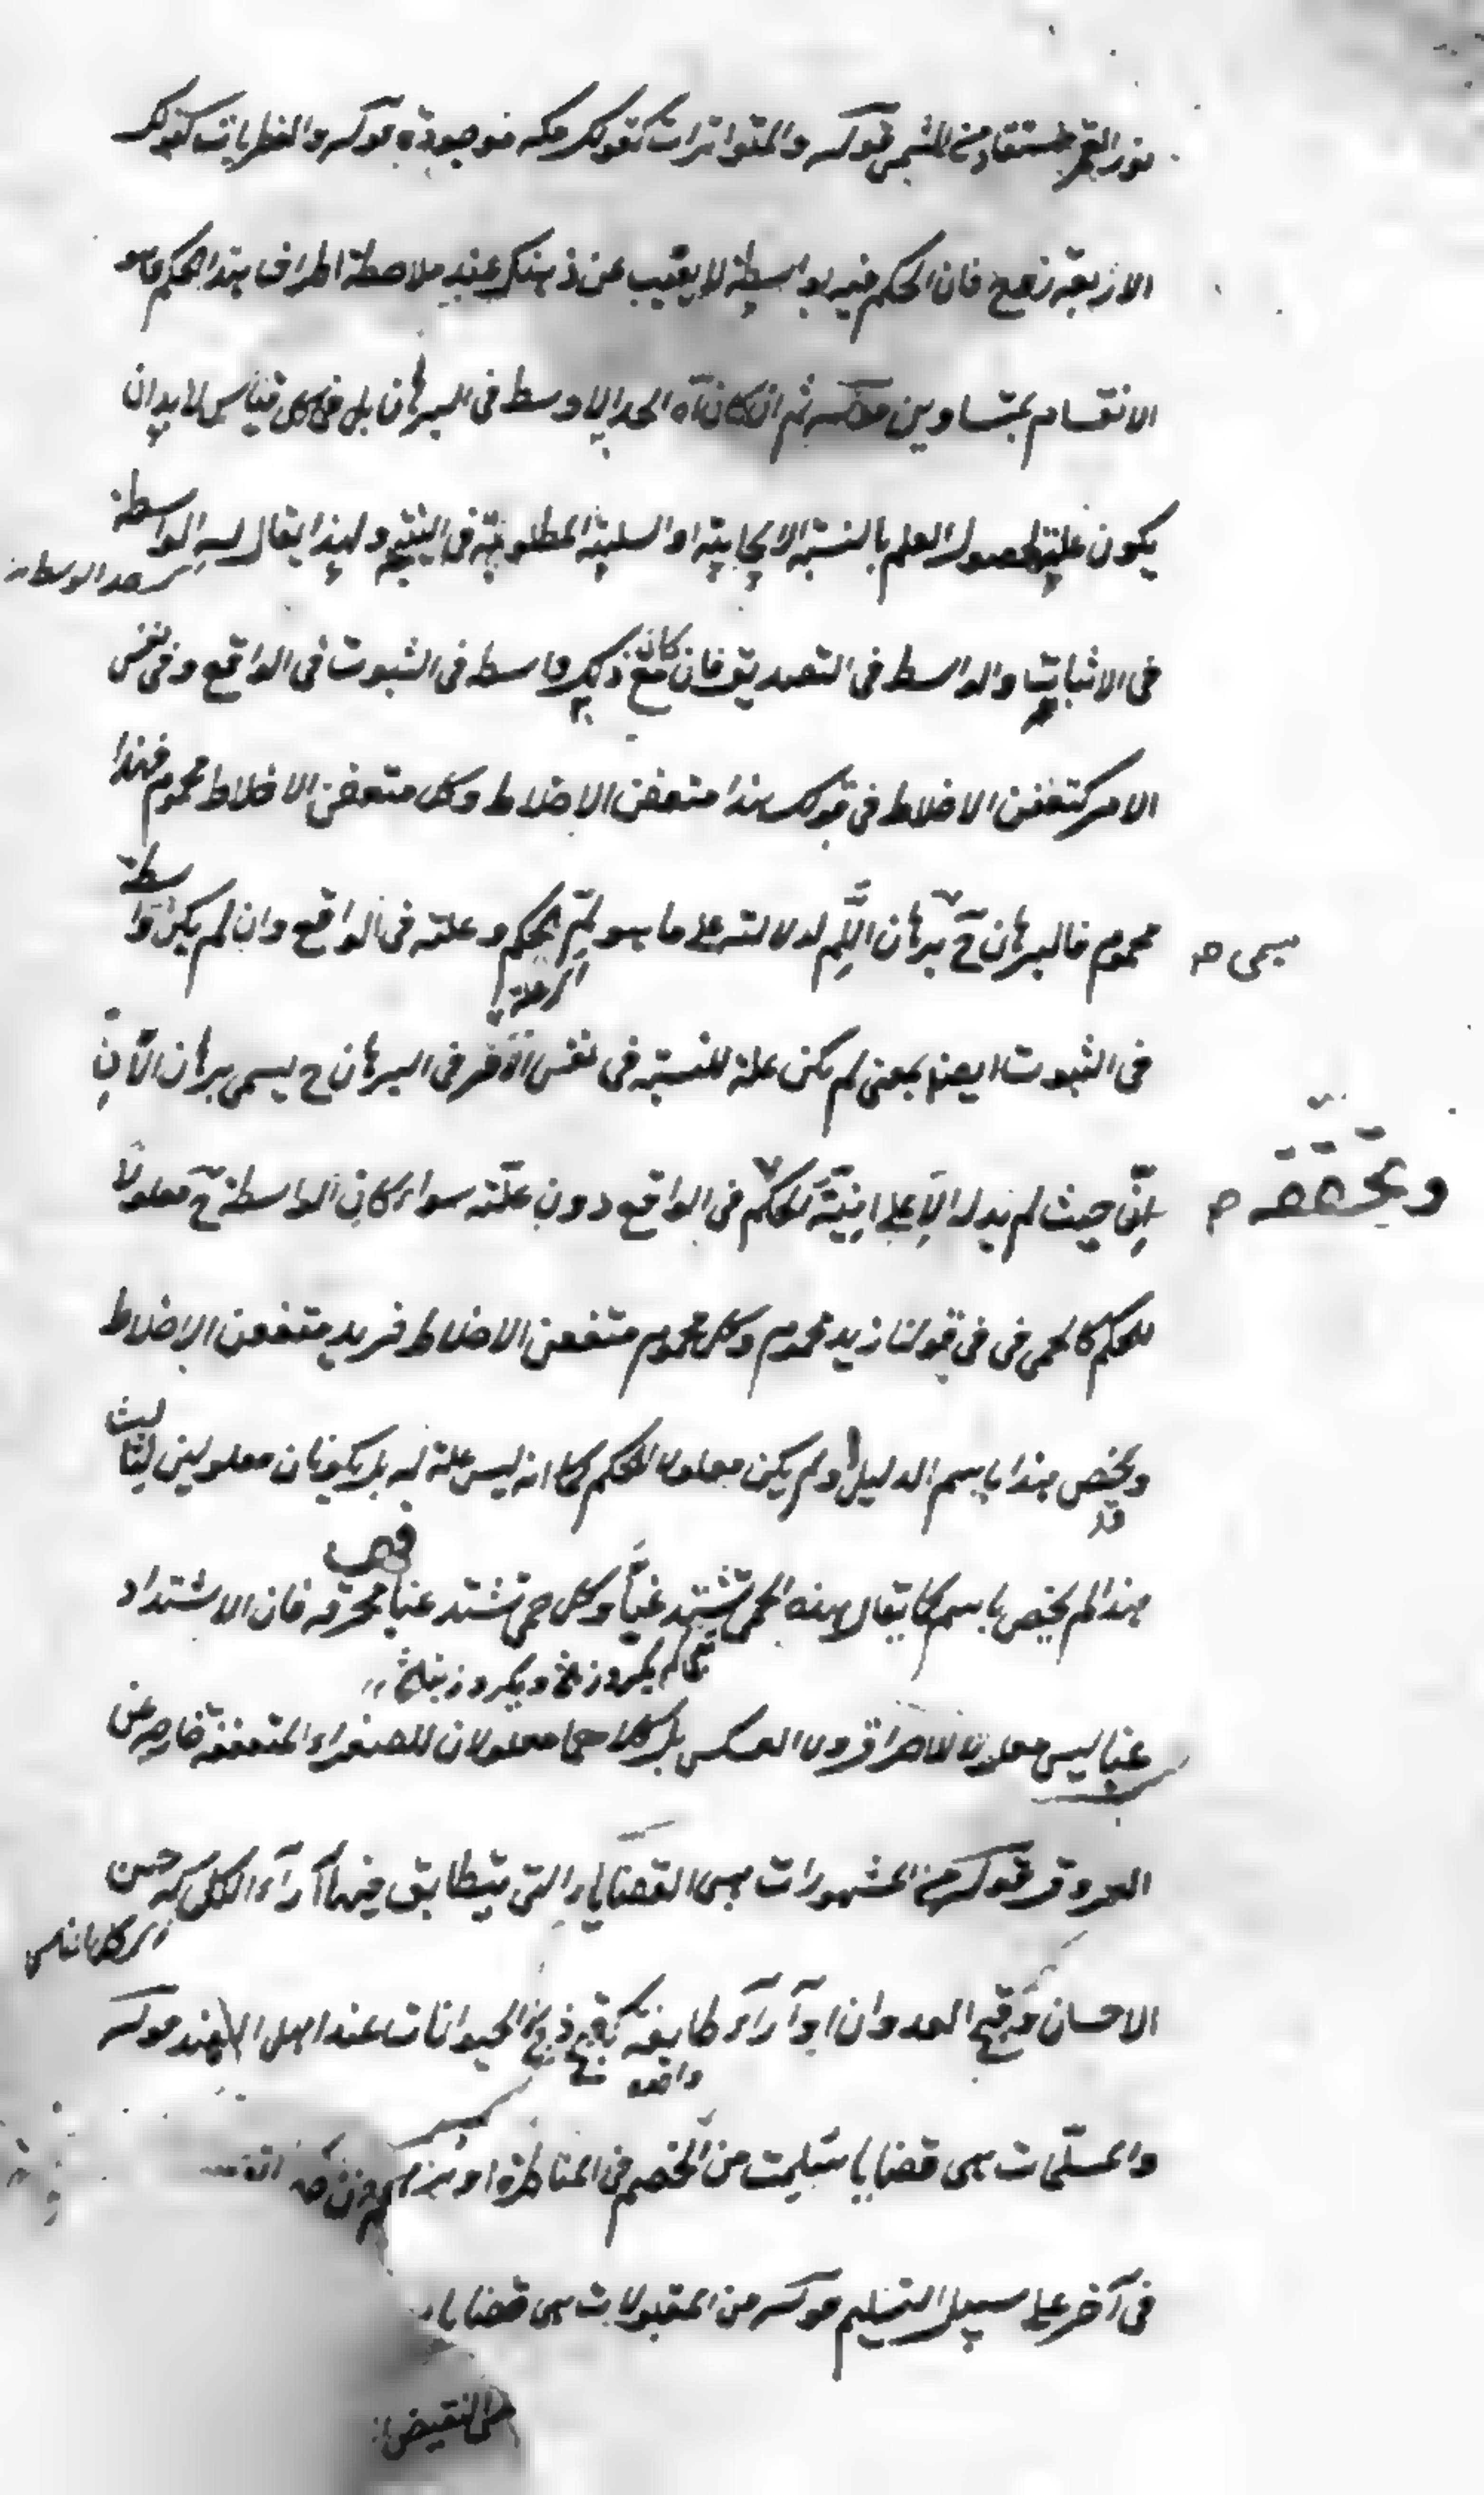 نور القمر مستفاد من الشمس قوله والمتواترات كقولك مكه موجودة قوله والفطريات كقولك
الاربعة زوج فان الحكم فيه بواسطة لا يغيب عن ذهنك عند ملاحظة اطراف هذا الحكم هو
الانقسام بمتساويين قوله ثم ان كان آه الحد الاوسط فى البرهان بل فى كل قياس لا بد ان
يكون علة لحصول العلم بالنسبة الايجابية او السلبية المطلوبة فى النتيجة ولهذا يقال له الواسطة
حد الوسط
فى الاثبات والواسط فى التصديق فان كان مع ذلك واسطه فى الثبوت فى الواقع وفى نفس
الامر كتعفن الاخلاط فى قولك هذا متعفن الاخلاط وكل متعفن الاخلاط محموم فهذا
محموم فالبرهان ح برهان اللم لدلالته على ما هو لم الحكم وعلته فى الواقع وان لم يكن واسطة
يسمى صح
اى علة
فى الثبوت ايضا بمعنى لم يكن علة للنسبة فى نفس الامر فى البرهان ح يسمى برهان الان
انى حيث لم يدل الا على انية الحكم فى الواقع دون علته سواء كان الواسطة ح معلولا
وتحققه صح
للحكم كالحمى فى فى قولنا زيد محموم وكل محموم متعفن الاخلاط فزيد متعفن الاخلاط
ويخص هذا باسم الدليل او لم يكن معلولا للحكم كما انه ليس علة له بل يكونان معلولين لثالث
قد
هذا لم يخص باسم كما يقال هذه الحمى تشتد غبا وكل حمى تشتد غبا محرقه فان الاشتداد
غبا ليس معلولا للاحراق ولا العكس بل كلاهما معلولان للصفراء المتعفنة خارجه عن
العروق قوله من المشهورات هى القضايا التى يتطابق فيها آراء الكل كحسن
الاحسان وقبح العدوان او آراء طايفة كقبح ذبح الحيوانات عند اهل الهند قوله
والمسلمات هى قضايا سلمت من الخصم فى المناظرة او برهن
فى آخر على سبيل التسليم قوله من المقبولات هى قضايا